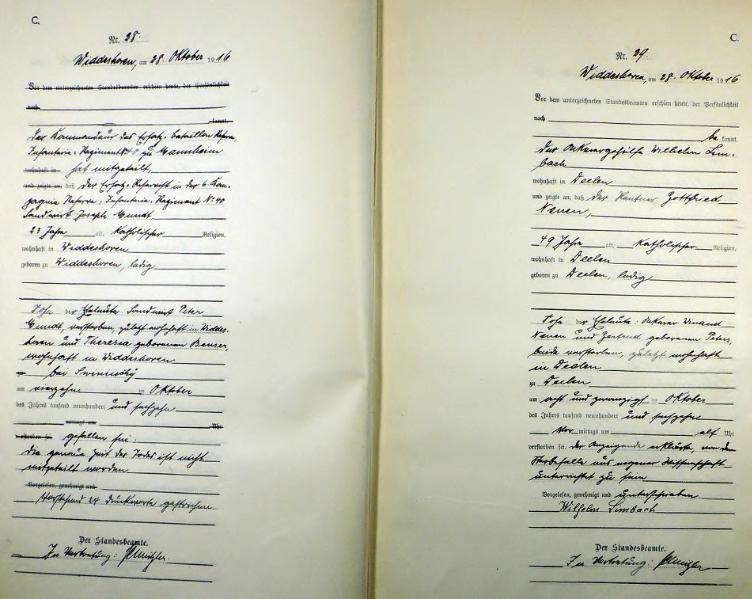 C.
Nr. 28.
Widdeshoven, am 28. Oktober 1916
Vor dem unterzeichneten Standesbeamten erschien heute, der Persönlichkeit
nach
kannt,
Der Kommandeur des Ersatz-Bataillon Reserve
Infanterie-Regiments zu Mannheim
hat mitgeteilt,
daß der Ersatz-Reservist in der 6. Kom-
pagnie Reserve-Infanterie-Regiment Nr 40
Landwirt Joseph
23 Jahre alt, katholischer Religion,
wohnhaft in Widdeshoven
geboren zu Widdeshoven, ledig
Sohn der Eheleute Landwirt Peter
verstorben, zuletzt wohnhaft in Widdes-
hoven und Theresia geborenen
wohnhaft in Widdeshoven
bei
am vierzehn ten Oktober
des Jahres tausend neunhundert und sechzehn
mittags um Uhr
gefallen sei.
Die genaue Zeit des Todes ist nicht
mitgeteilt worden
Vorgelesen, genehmigt und
Vorstehend 24 Druckworte gestrichen
Der Standesbeamte.
In Vertretung:
C.
Nr. 29.
Widdeshoven, am 28. Oktober 1916
Vor dem unterzeichneten Standesbeamten erschien heute, der Persönlichkeit
nach
be kannt,
der Ackergehilfe Wilhelm Lim-
bach
wohnhaft in Deelen
und zeigte an, daß der Rentner Gottfried
49 Jahre alt, katholischer Religion,
wohnhaft in Deelen
geboren zu Deelen, ledig
Sohn der Eheleute Ackerer Winand
und Gertrud geborenen Peters,
beide verstorben, zuletzt wohnhaft
in Deelen
zu Deelen
am acht und zwanzigsten Oktober
des Jahres tausend neunhundert und sechzehn
Vor mittags um elf Uhr
verstorben sei. Der Anzeigende erklärte, von dem
Sterbefalle aus eigener Wissenschaft
unterrichtet zu sein
Vorgelesen, genehmigt und unterschrieben
Wilhelm Limbach
Der Standesbeamte.
In Vertretung: